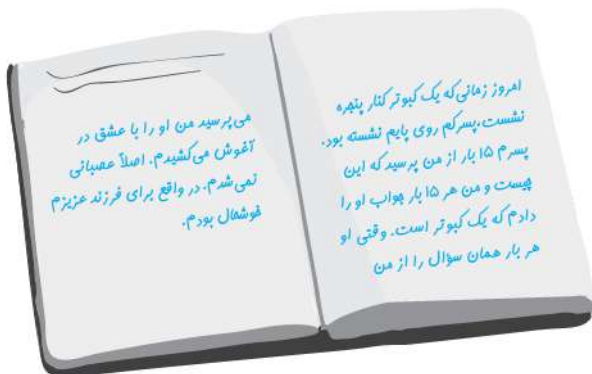 امروز زمانی که یک کبوتر کنار پنجره
نشست، پسرکم روی پایم نشسته بود.
پسرم ۱۵ بار از من پرسید که این
چیست و من هر ۱۵ بار جواب او را
دادم که یک کبوتر است. وقتی او
هر بار همان سؤال را از من
می‌پرسید من او را با عشق در
آغوش می‌کشیدم. اصلاً عصبانی
نمی‌شدم. در واقع برای فرزند عزیزم
خوشحال بودم.